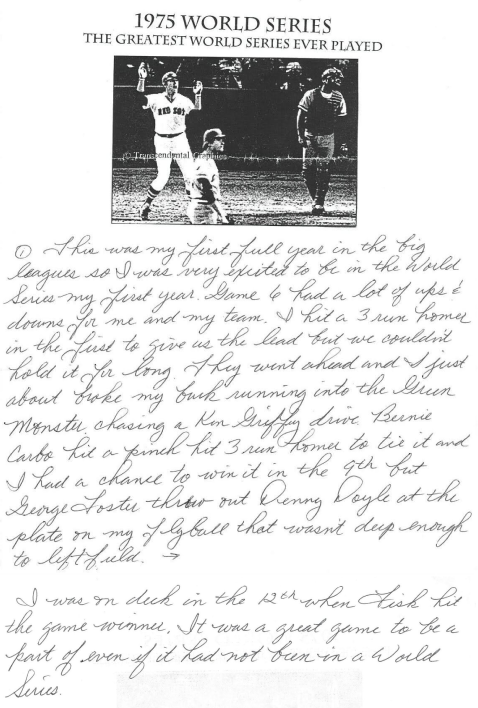 1975 WORLD SERIES
THE GREATEST WORLD SERIES EVER PLAYED
RED SOX
© Transcendental Graphics
① This was my first full year in the big
leagues so I was very excited to be in the World
Series my first year. Game 6 had a lot of ups &
downs for me and my team. I hit a 3 run homer
in the first to give us the lead but we couldn't
hold it for long. They went ahead and I just
about broke my back running into the Green
Monster chasing a Ken Griffey drive. Bernie
Carbo hit a pinch hit 3 run homer to tie it and
I had a chance to win it in the 9th but
George Foster throw out Denny Doyle at the
plate on my flyball that wasn't deep enough
to left field. →
I was on deck in the 12th when Fisk hit
the game winner. It was a great game to be a
part of even if it had not been in a World
Series.